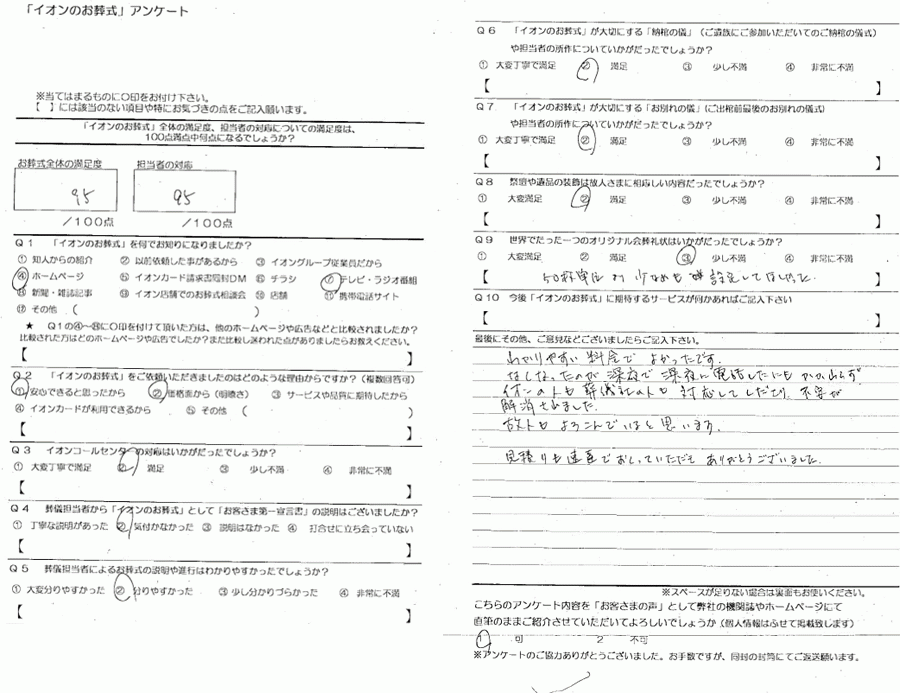 「イオンのお葬式」アンケート
※当てはまるものに○印をお付け下さい。
【　】には該当のない項目や特にお気づきの点をご記入願います。
「イオンのお葬式」全体の満足度、担当者の対応についての満足度は、
100点満点中何点になるでしょうか?
お葬式全体の満足度　担当者の対応
95　95
/100点　/100点
Q1　「イオンのお葬式」を何でお知りになりましたか?
① 知人からの紹介　② 以前依頼した事があるから　③ イオングループ従業員だから
④ ホームページ　⑤ イオンカード請求書同封DM　⑥ チラシ　⑦ テレビ・ラジオ番組
⑧ 新聞・雑誌記事　⑨ イオン店舗でのお葬式相談会　⑩ 店舗　⑪ 携帯電話サイト
⑫ その他（　）
★　Q1の④～⑧に○印を付けて頂いた方は、他のホームページや広告などと比較されましたか?
比較された方はどのホームページや広告でしたか?また比較し迷われた点がありましたらお教えください。
【　】
Q2　「イオンのお葬式」をご依頼いただきましたのはどのような理由からですか?（複数回答可）
① 安心できると思ったから　② 価格面から（明瞭さ）　③ サービスや品質に期待したから
④ イオンカードが利用できるから　⑤ その他（　）
【　】
Q3　イオンコールセンターの対応はいかがだったでしょうか?
① 大変丁寧で満足　② 満足　③ 少し不満　④ 非常に不満
【　】
Q4　葬儀担当者から「イオンのお葬式」として「お客さま第一宣言書」の説明はございましたか?
① 丁寧な説明があった　② 気付かなかった　③ 説明はなかった　④ 打合せに立ち会っていない
【　】
Q5　葬儀担当者によるお葬式の説明や進行はわかりやすかったでしょうか?
① 大変分りやすかった　② 分りやすかった　③ 少し分かりづらかった　④ 非常に不満
【　】
Q6　「イオンのお葬式」が大切にする「納棺の儀」（ご遺族にご参加いただいてのご納棺の儀式）
や担当者の所作についていかがだったでしょうか?
① 大変丁寧で満足　② 満足　③ 少し不満　④ 非常に不満
【　】
Q7　「イオンのお葬式」が大切にする「お別れの儀」（ご出棺前最後のお別れの儀式）
や担当者の所作についていかがだったでしょうか?
① 大変丁寧で満足　② 満足　③ 少し不満　④ 非常に不満
【　】
Q8　祭壇や遺品の装飾は故人さまに相応しい内容だったでしょうか?
① 大変満足　② 満足　③ 少し不満　④ 非常に不満
【　】
Q9　世界でたった一つのオリジナル会葬礼状はいかがだったでしょうか?
① 大変満足　② 満足　③ 少し不満　④ 非常に不満
【 50枚単位 少なめも 設定してほしかった 】
Q10　今後「イオンのお葬式」に期待するサービスが何かあればご記入下さい
【　】
最後にその他、ご意見などございましたらご記入下さい。
わかりやすい料金でよかったです。
なくなったのが深夜で深夜に電話したにもかかわらず
イオンの人も葬儀社の人も対応してくださり、不安が
解消されました。
故人もよろこんでいると思います。
見積りも速達でおくっていただきありがとうございました。
※スペースが足りない場合は裏面もお使いください。
こちらのアンケート内容を「お客さまの声」として弊社の機関誌やホームページにて
直筆のままご紹介させていただいてよろしいでしょうか（個人情報はふせて掲載致します）
1　可　2　不可
※アンケートのご協力ありがとうございました。お手数ですが、同封の封筒にてご返送願います。